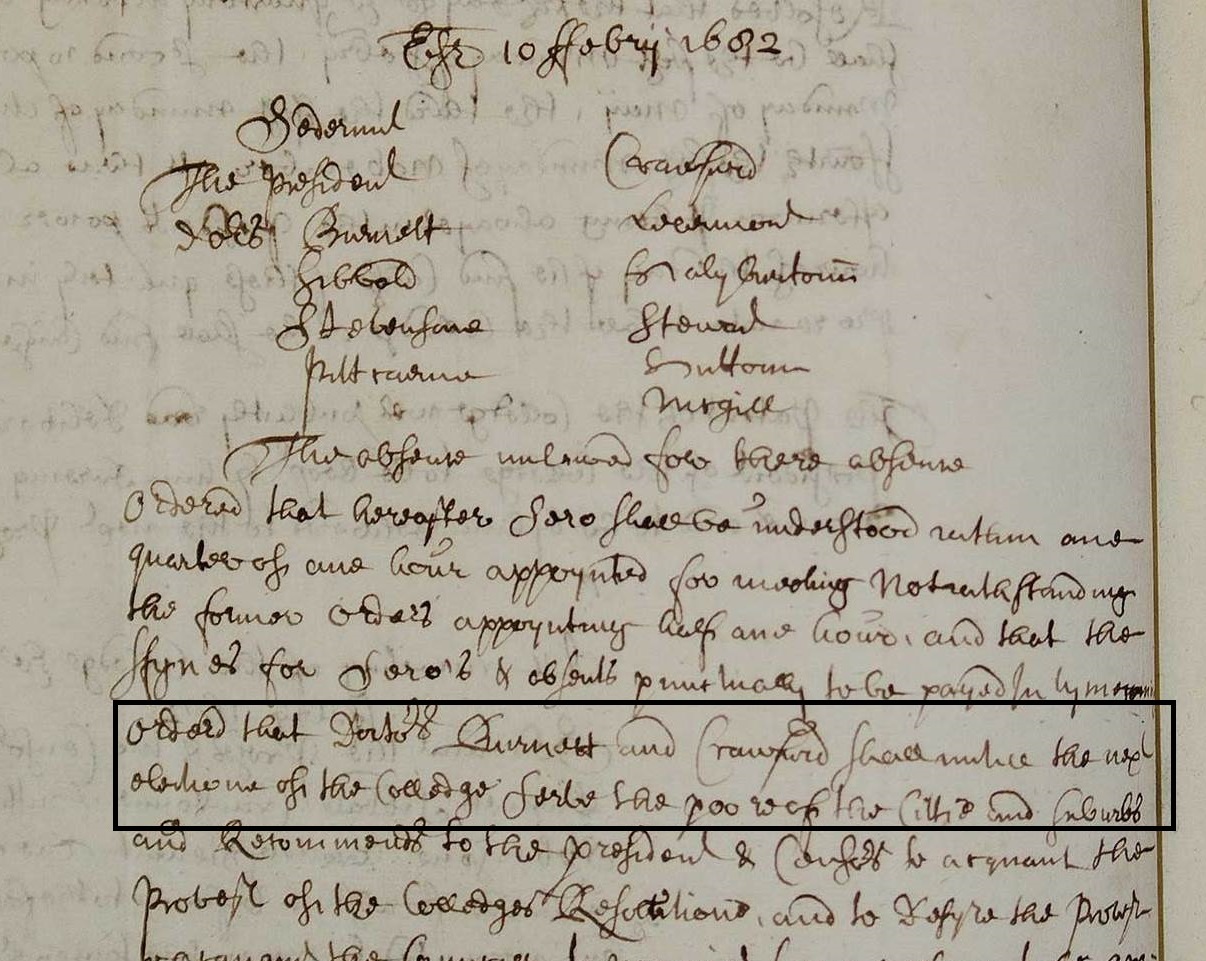 Edr 10 ffebrij 1682
Sederunt
The president Crawford
dors Burnett Livermond
Sibbald Halyburtoun
Stevensone Steuart
Pittcairne Huttoun
Mcgill
The absence unlawed for there absence
Ordered that hereafter Sero shall be understood within ane
quarter of ane hour appoynted for meeting Notwithstanding
the former Orders appoynting half ane hour, and that the
ffynes for Sero's & absents punctually to be payed In
Orderd that Doctors Burnett and Crawford shall untill the next
electione of the Colledge serve the poore of the Cittie and suburbs
and Recommends to the president & Censors to acquant the
Provest of the Colledges Resolutione, and to desyre the Provest
the